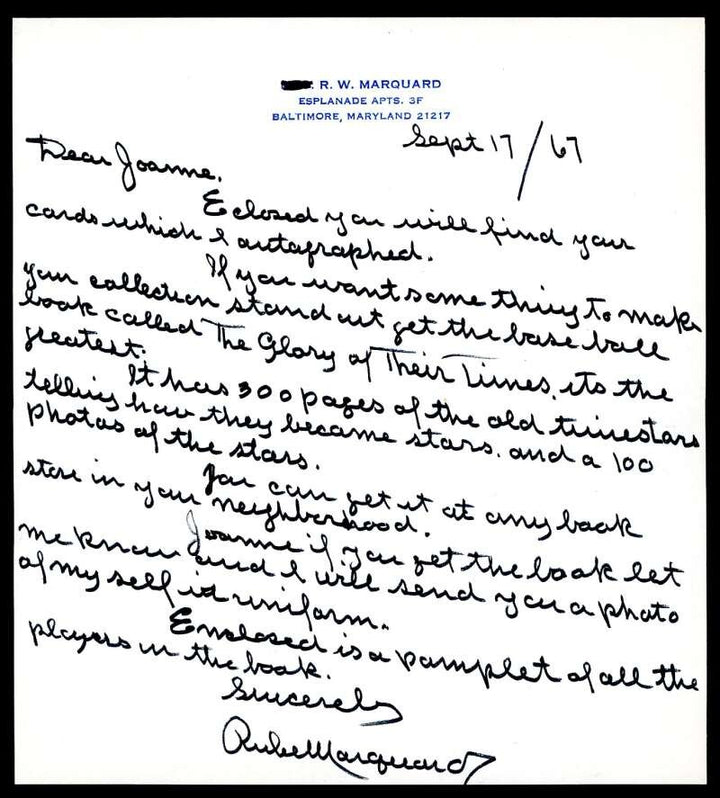 R. W. MARQUARD
ESPLANADE APTS. 3F
BALTIMORE, MARYLAND 21217
Sept 17/67
Dear Joanne.
Eclosed you will find your
cards which I autographed.
If you want some thing to make
your collection stand out get the base ball
book called The Glory of Their Times. its the
greatest.
It has 300 pages of the old timestars
telling how they became stars. and a 100
photos of the stars.
You can get it at any book
store in your neighborhood.
Joanne if you get the book let
me know and I will send you a photo
of my self in uniform.
Enclosed is a pamplet of all the
players in the book.
Sincerely
Rube Marquard